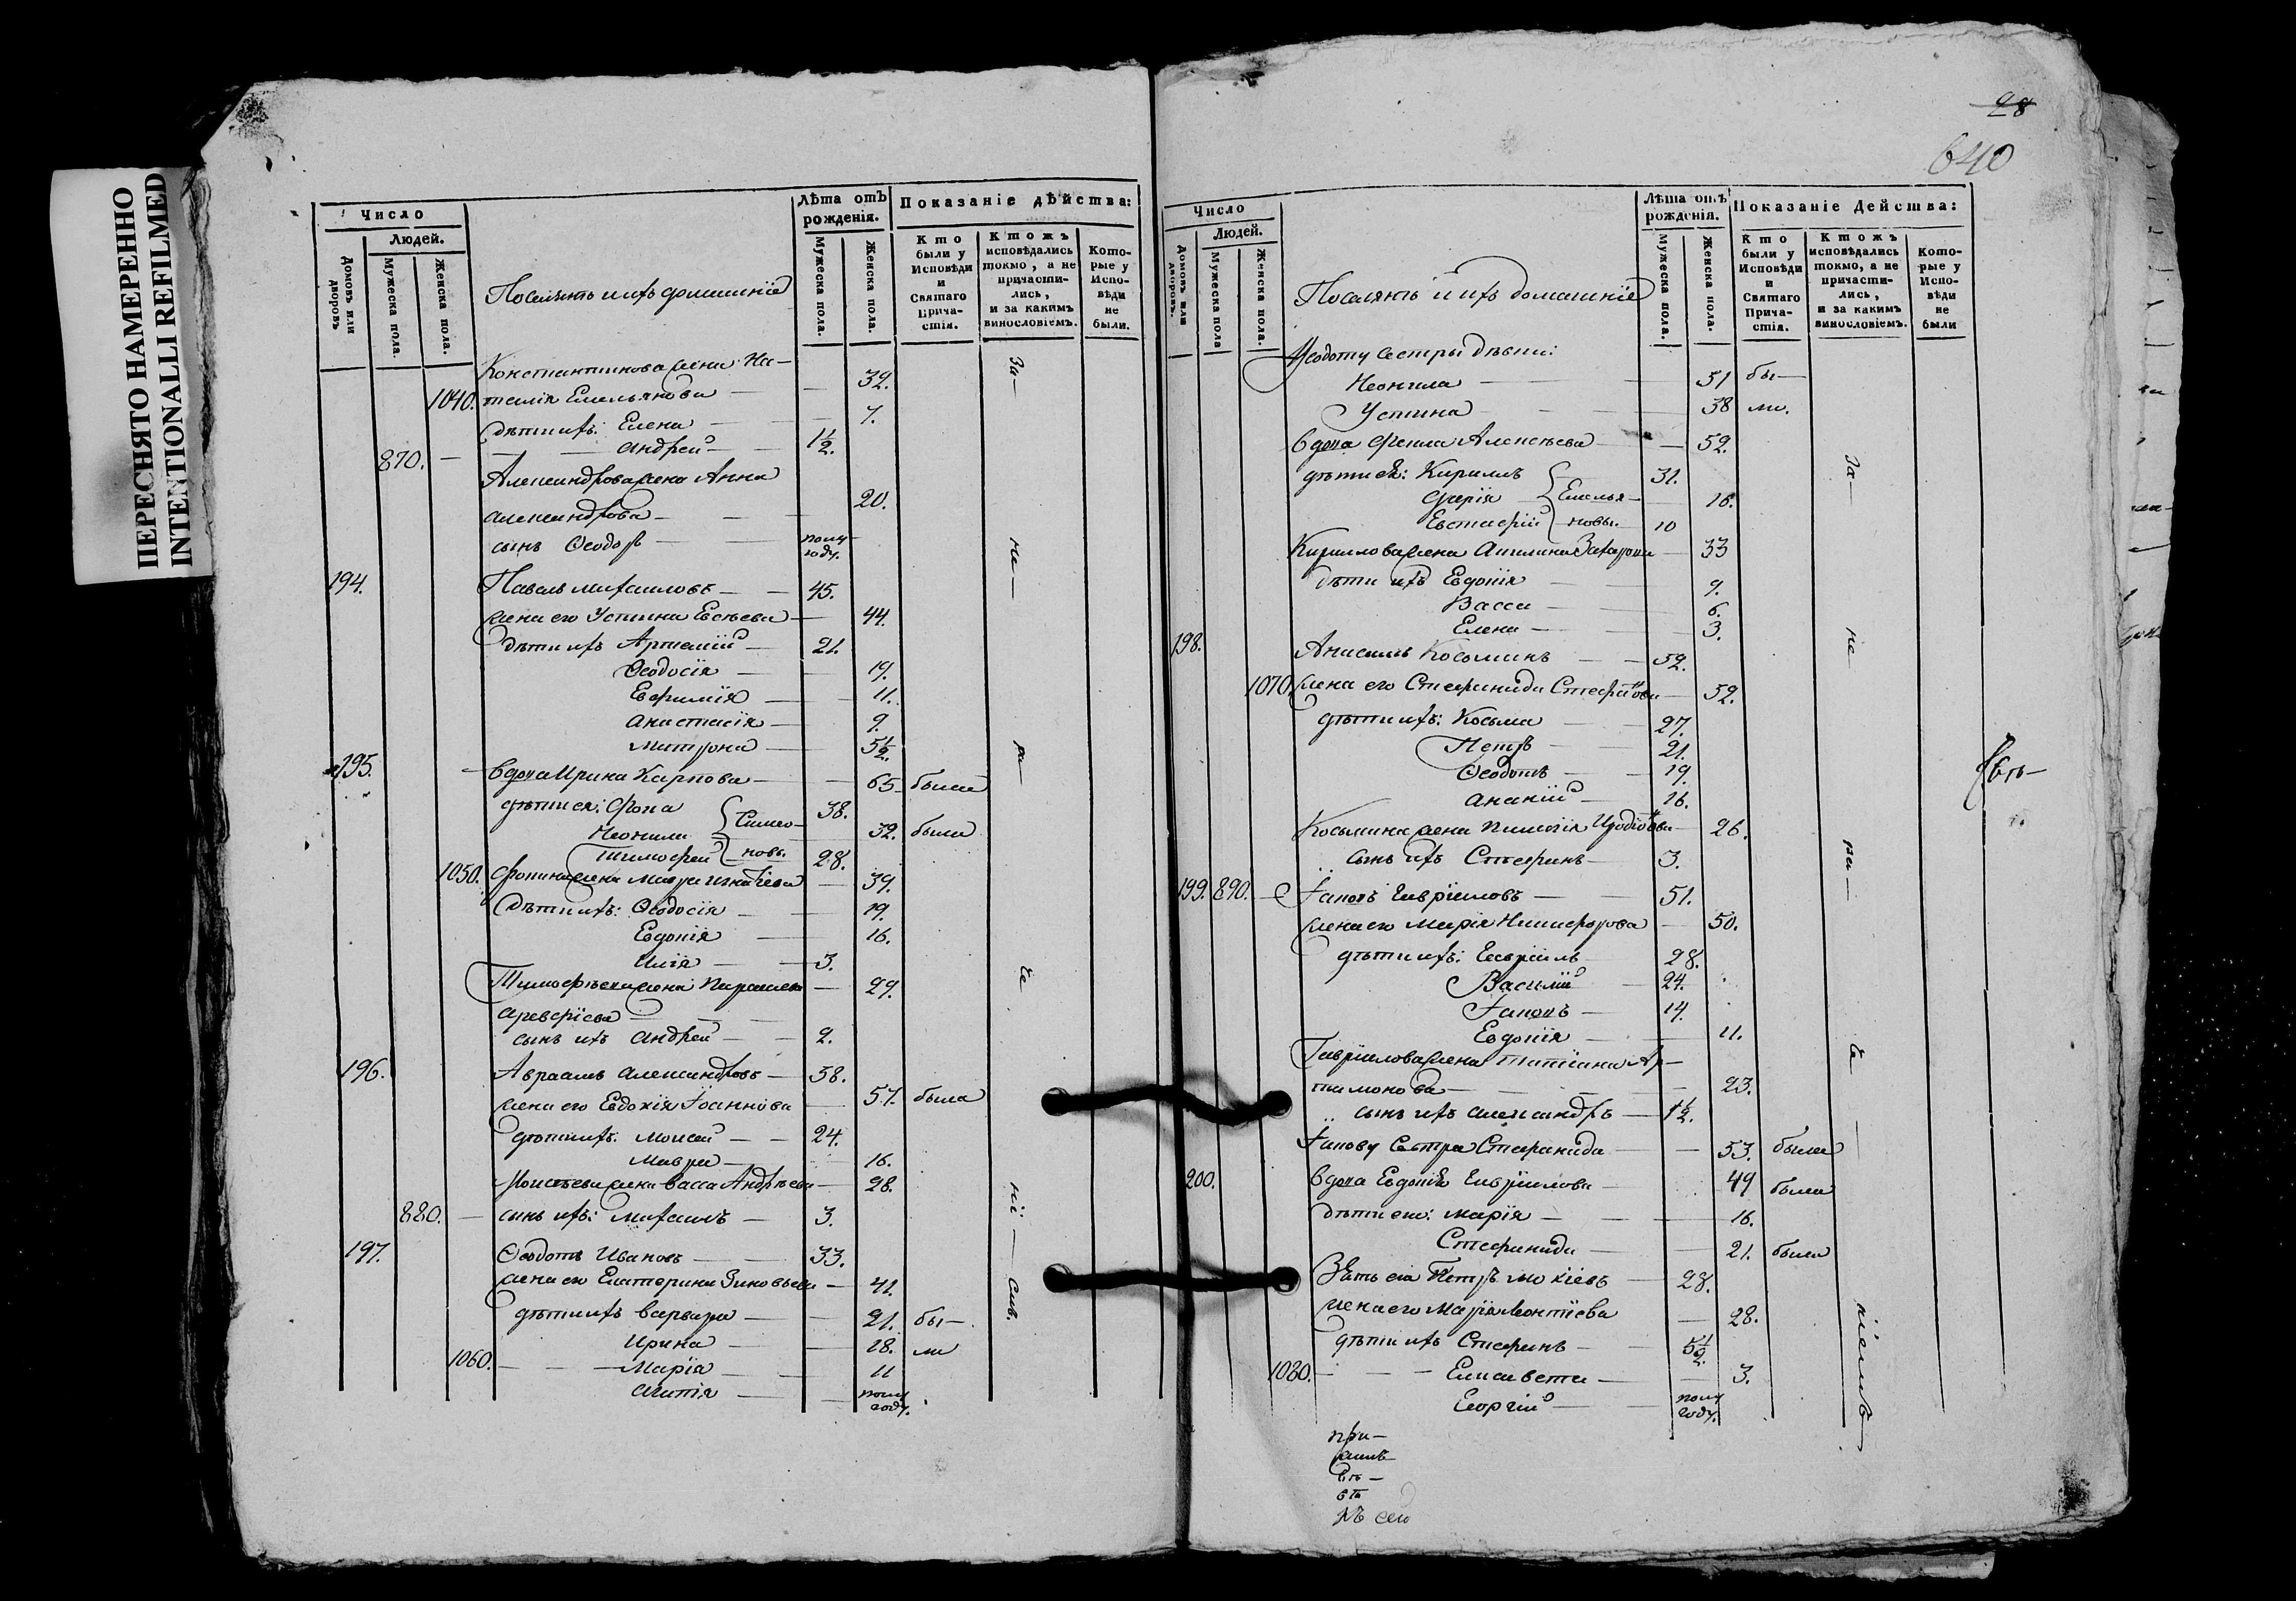 ПЕРЕСНЯТО НАМЕРЕННО
INTENTIONALLI REFILMED
Число
Людей.
Домовъ или дворовъ
Мужеска пола.
Женска пола.
Посаляне и ихъ домашніе
Лѣта отъ рожденія.
Мужеска пола.
Женска пола.
Показаніе дѣйства:
Кто были у Исповѣди и Святаго Прича-стія.
Ктожъ исповѣдались токмо, а не причасти-лись, и за какимъ винословіемъ.
Кото-рые у Испо-вѣди не были.
Константинова жена На-
1040. талія Емельянова — 32.
дѣти ихъ: Елена — 7.
870. — Андрей — 1½.
Александрова жена Анна
Александрова — 20.
сынъ Ѳеодоръ — полу году.
194. Павелъ Михаиловъ — 45.
жена его Устина Евсѣева — 44.
дѣти ихъ Артемій — 21.
Ѳеодосія — 19.
Евфимія — 11.
Анастасія — 9.
Матрона — 5½.
195. вдова Ирина Карпова — 65. была
дѣти ея: Фока 38.
Неонила Симео- 32. была
Тимофей новы. 28.
1050. Фокина жена Мавра Игнатіева — 39.
Дѣти ихъ: Ѳеодосія — 19.
Евдокія — 16.
Илія — 3.
Тимофѣева жена Параскева — 29.
Арефіева —
сынъ ихъ Андрей — 2.
196. Авраамъ Александровъ — 58.
жена его Евдокія Іоаннова — 57. была
дѣти ихъ: Моисей — 24.
Мавра — 16.
Моисѣева жена Васса Андрѣева — 28.
880. — сынъ ихъ: Михаилъ — 3.
197. Ѳеодотъ Ивановъ — 33.
жена его Екатерина Зиновьева — 41.
дѣти ихъ Варвара — 21. бы-
Ирина — 18. ли
1060. — Марія — 11
Агапія — полу году.
За-
не-
ра-
че
ні-
емъ.
28
640
Число
Людей.
Домовъ или дворовъ.
Мужеска пола
Женска пола.
Посаляне и ихъ домашніе
Лѣта отъ рожденія.
Мужеска пола.
Женска пола.
Показаніе Действа:
Кто были у Исповѣди и Святаго Прича-стія.
Ктожъ исповѣдались токмо, а не причасти-лись, и за какимъ винословіемъ.
Кото-рые у Испо-вѣди не были
Ѳеодоту сестры дѣвки:
Неонила — 51 бы-
Устина — 38 ли.
вдова Фекла Алексѣева — 52.
дѣти ея: Кириллъ 31.
Емелья- 16.
Евстафій новы. 10
Кириллова жена Акилина Захарова — 33
дѣти ихъ Евдокія 9.
Васса — 6.
Елена — 3.
198. Анисимъ Косминъ — 52.
1070. жена его Стефанида Стефанова — 52.
дѣти ихъ: Косма — 27.
Петръ — 21.
Ѳеодотъ — 19.
Ананій — 16.
Космина жена 26.
сынъ ихъ Стефанъ — 3.
199. 890. — Іаковъ Гавріиловъ — 51.
жена его Марія Никифорова — 50.
дѣти ихъ: Гавріилъ 28.
Василій 24.
Іаковъ — 14.
Евдокія — 11.
Гавріилова жена Татіана Ар-
тамонова — 23.
сынъ ихъ Александръ — 1½.
Іакову сестра Стефанида — 53. была
200. вдова Евдокія Гавріилова — 49 была
дѣти ея: Марія — 16.
Стефанида — 21. была
Зять ея Петръ Мокіевъ — 28.
жена его Марія Леонтіева — 28.
дѣти ихъ Стефанъ — 5½.
1080. — Елисавета — 3.
Георгій — полу году.
За-
не
ра-
че
ніемъ